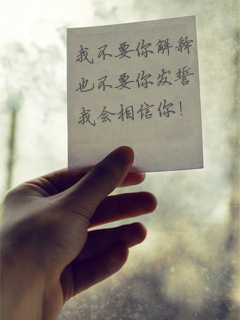 我不要你解释
也不要你发誓
我会相信你!